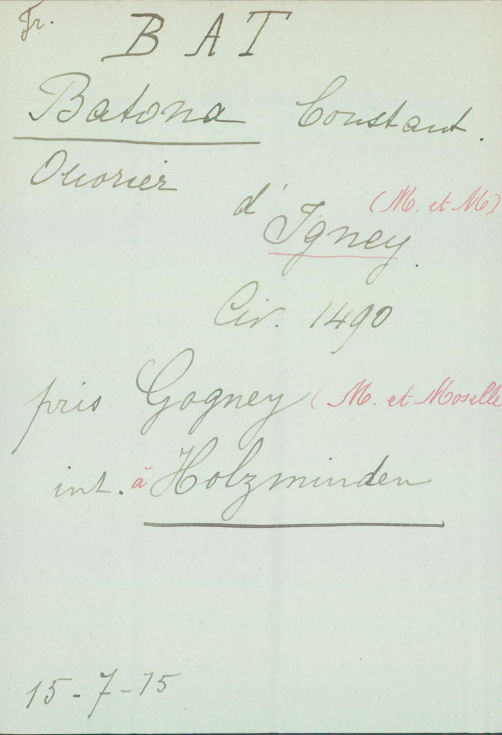 Fr.
B A T
Batona Constant.
Ouvrier
d' Igney (M. et M)
Civ. 1490
pris Gogney (M. et Moselle
int. à Holzminden
15-7-15